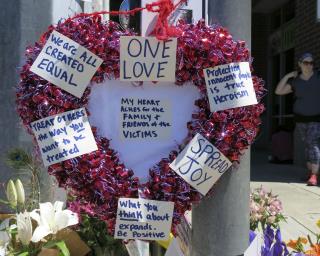 We are ALL
CREATED
EQUAL
ONE
LOVE
Protecting
innocent people
is true
Heroism
MY HEART
ACHES FOR THE
FAMILY +
FRIENDS OF THE
VICTIMS
TREAT OTHERS
the WAY YOU
want to be
treated
SPREAD
JOY
What you
think about
expands.
Be Positive